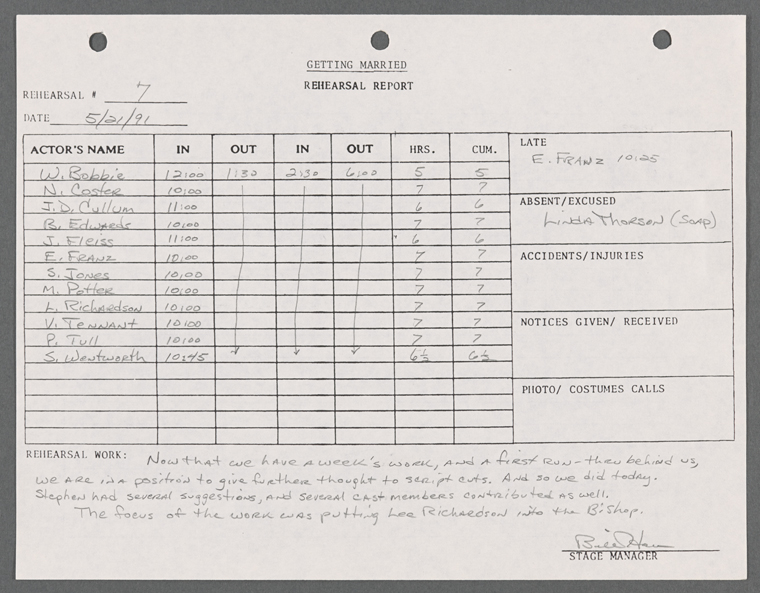 GETTING MARRIED
REHEARSAL REPORT
REHEARSAL # 7
DATE 5/21/91
ACTOR'S NAME IN OUT IN OUT HRS. CUM.
W. Bobbie 12:00 1:30 2:30 6:00 5 5
N. Coster 10:00 7 7
J.D. Cullum 11:00 6 6
B. Edwards 10:00 7 7
J. Fleiss 11:00 6 6
E. Franz 10:00 7 7
S. Jones 10:00 7 7
M. Potter 10:00 7 7
L. Richardson 10:00 7 7
V. Tennant 10:00 7 7
P. Tull 10:00 7 7
S. Wentworth 10:45 6½ 6½
LATE
E. Franz 10:25
ABSENT/EXCUSED
Linda Thorson (Soap)
ACCIDENTS/INJURIES
NOTICES GIVEN/ RECEIVED
PHOTO/ COSTUMES CALLS
REHEARSAL WORK: Now that we have a week's work, and a first run-thru behind us,
we are in a position to give further thought to script cuts. And so we did today.
Stephen had several suggestions, and several cast members contributed as well.
The focus of the work was putting Lee Richardson into the Bishop.
STAGE MANAGER